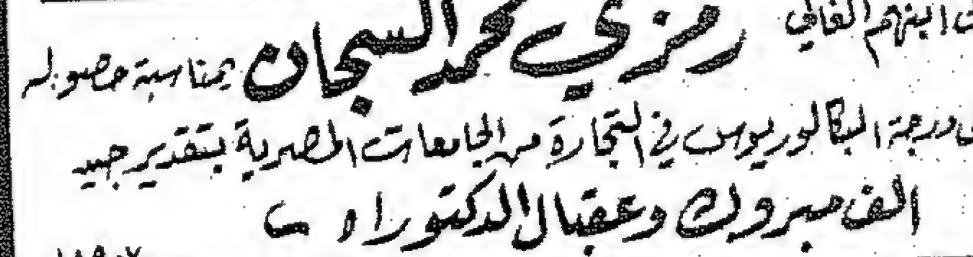 ابنهم الغالي رمزي محمد السجان بمناسبة حصوله
درجة البكالوريوس في التجارة من الجامعات المصرية بتقدير جيد
الف مبروك وعقبال الدكتوراه